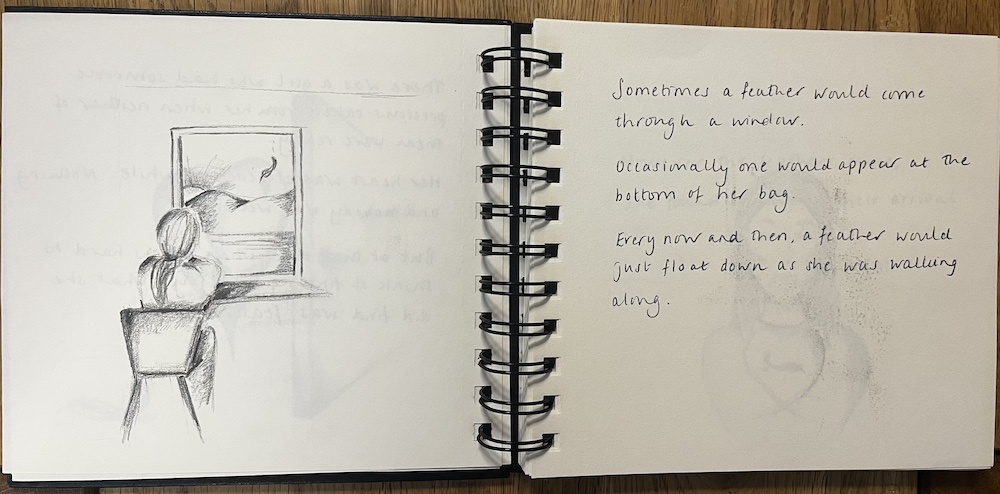 Sometimes a feather would come
through a window.
Occasionally one would appear at the
bottom of her bag.
Every now and then, a feather would
just float down as she was walking
along.